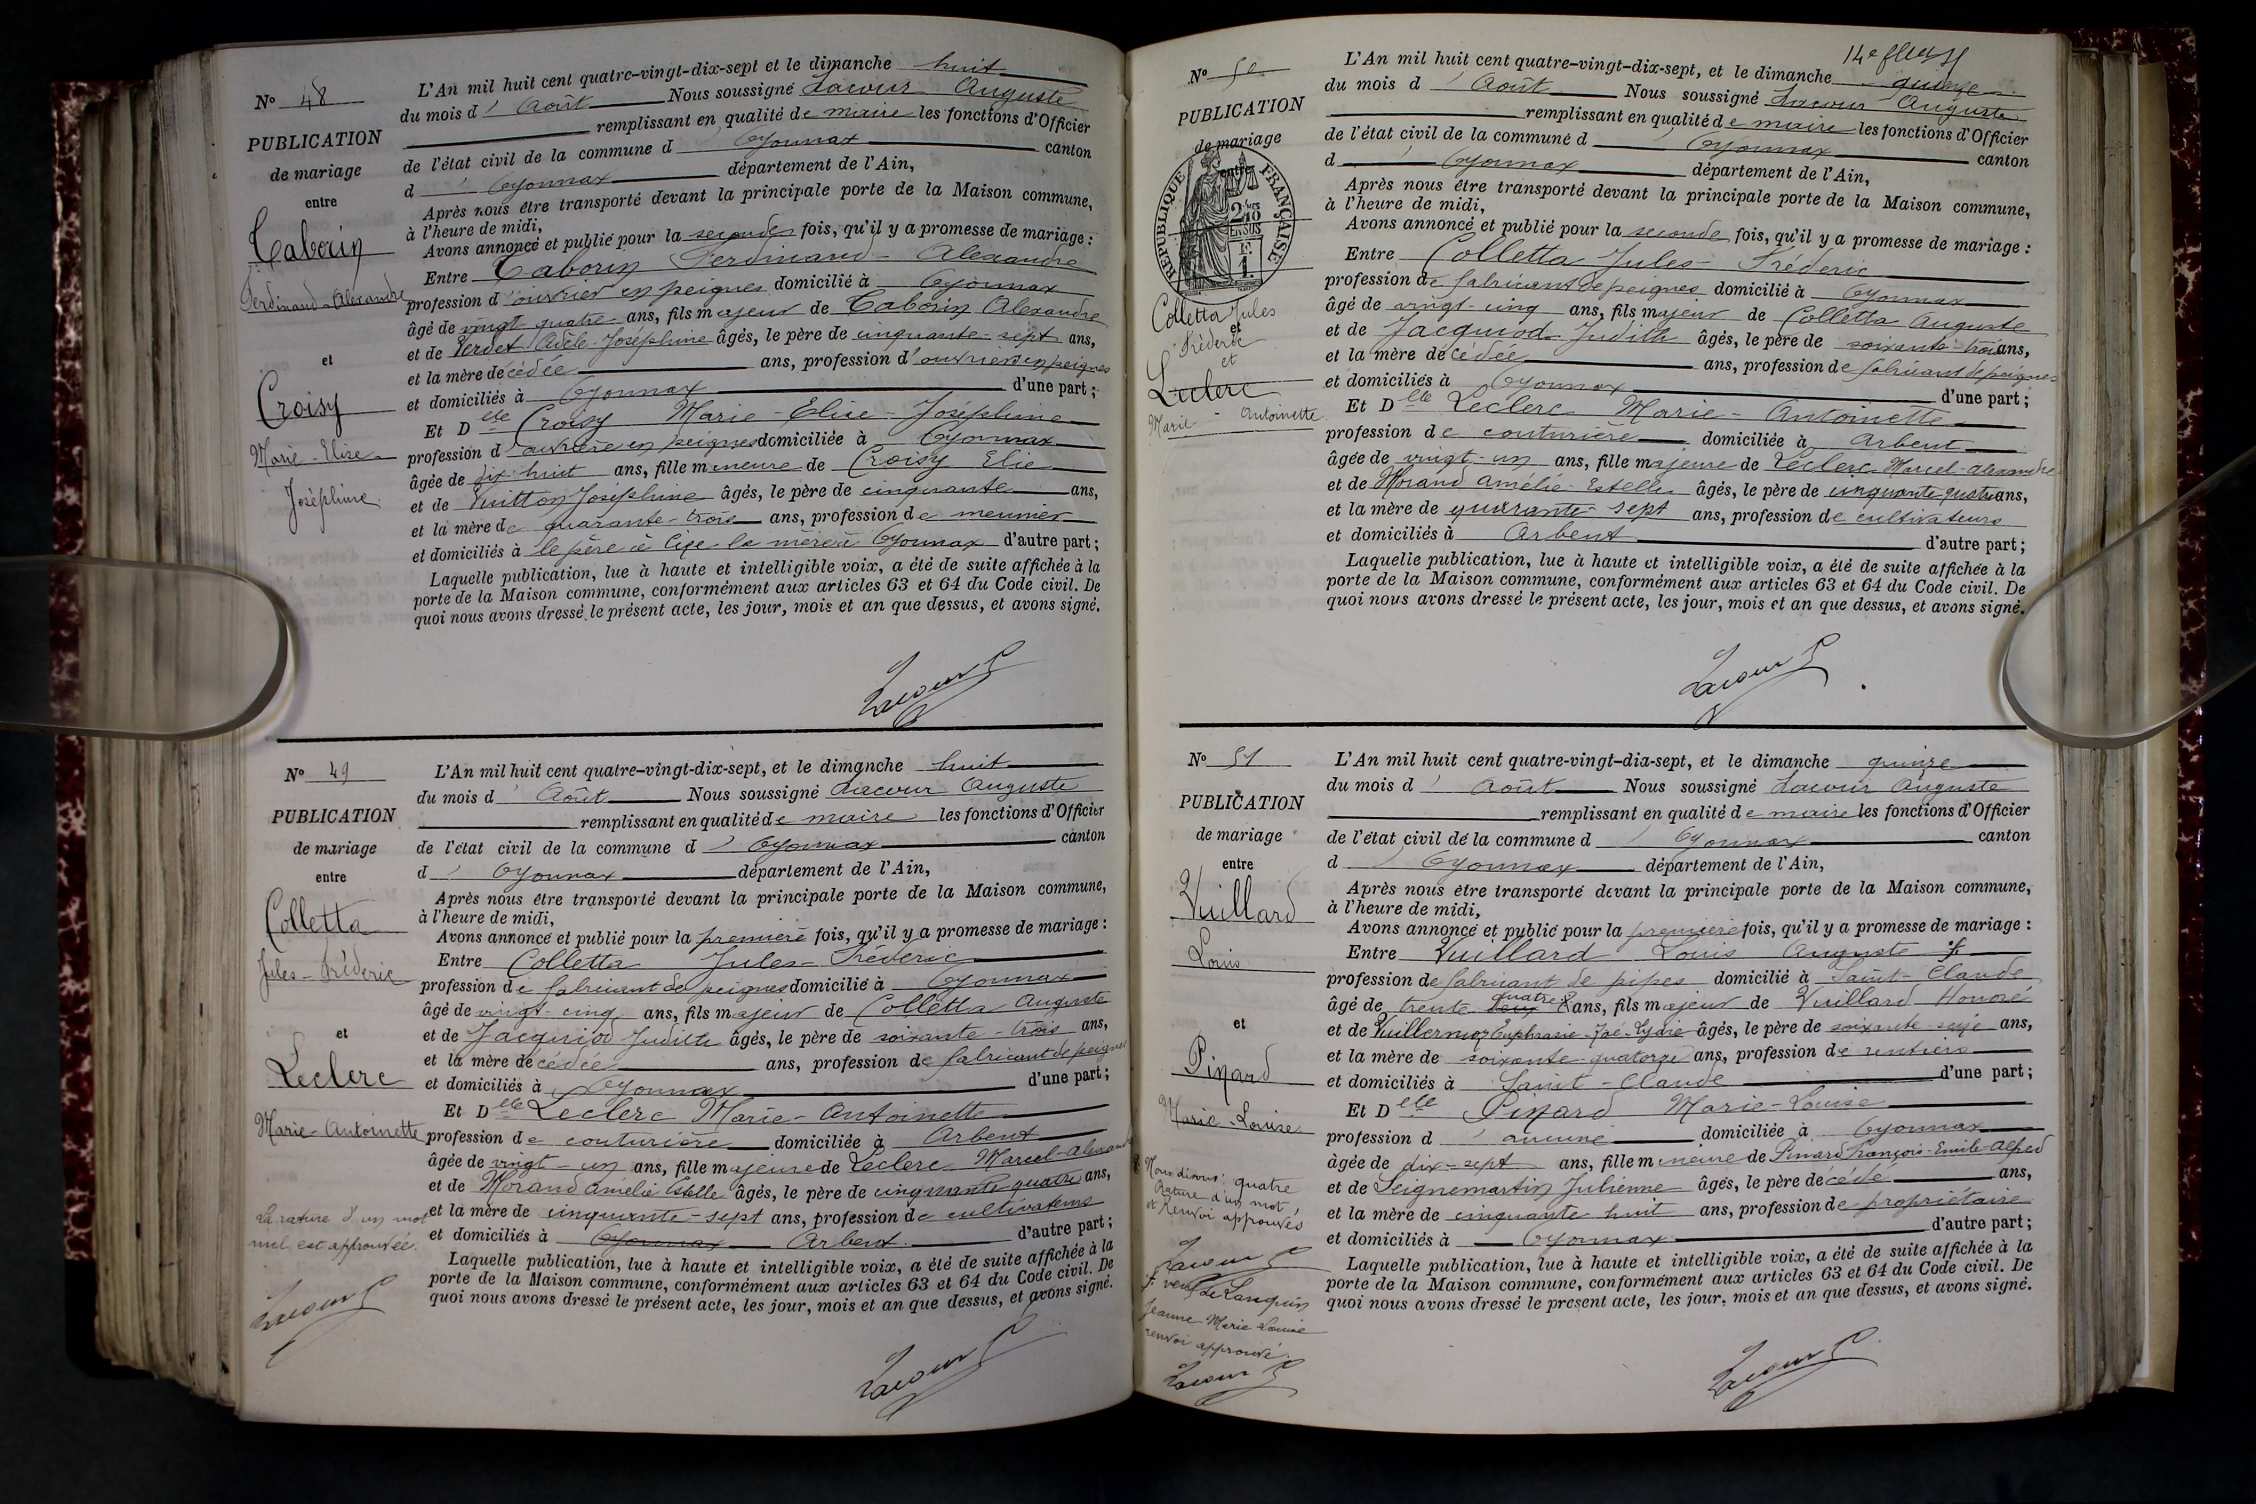 N° 48
PUBLICATION
de mariage
entre
Taborin
Ferdinand-Alexandre
et
Croisy
Marie-Elise-
Joséphine
L'An mil huit cent quatre-vingt-dix-sept et le dimanche huit
du mois d'Août Nous soussigné Lacour Auguste
remplissant en qualité de maire les fonctions d'Officier
de l'état civil de la commune d'Oyonnax canton
d'Oyonnax département de l'Ain,
Après nous être transporté devant la principale porte de la Maison commune,
à l'heure de midi,
Avons annoncé et publié pour la seconde fois, qu'il y a promesse de mariage :
Entre Taborin Ferdinand-Alexandre
profession d'ouvrier en peignes domicilié à Oyonnax
âgé de vingt-quatre ans, fils majeur de Taborin Alexandre
et de Verdet Adèle-Joséphine âgés, le père de cinquante-sept ans,
et la mère décédée ans, profession d'ouvrier en peignes
et domiciliés à Oyonnax d'une part ;
Et Dlle Croisy Marie-Elise-Joséphine
profession d'ouvrière en peignes domiciliée à Oyonnax
âgée de dix-huit ans, fille mineure de Croisy Elie
et de Vuitton Joséphine âgés, le père de cinquante ans,
et la mère de quarante-trois ans, profession de meunier
et domiciliés à le père à Cize la mère à Oyonnax d'autre part ;
Laquelle publication, lue à haute et intelligible voix, a été de suite affichée à la
porte de la Maison commune, conformément aux articles 63 et 64 du Code civil. De
quoi nous avons dressé le présent acte, les jour, mois et an que dessus, et avons signé.
Lacour
N° 49
PUBLICATION
de mariage
entre
Colletta
Jules-Fréderic
et
Leclerc
Marie-Antoinette
La rature d'un mot
nul est approuvée.
Lacour
L'An mil huit cent quatre-vingt-dix-sept, et le dimanche huit
du mois d'Août Nous soussigné Lacour Auguste
remplissant en qualité de maire les fonctions d'Officier
de l'état civil de la commune d'Oyonnax canton
d'Oyonnax département de l'Ain,
Après nous être transporté devant la principale porte de la Maison commune,
à l'heure de midi,
Avons annoncé et publié pour la première fois, qu'il y a promesse de mariage :
Entre Colletta Jules-Fréderic
profession de fabricant de peignes domicilié à Oyonnax
âgé de vingt-cinq ans, fils majeur de Colletta Auguste
et de Jacquiod Judith âgés, le père de soixante-trois ans,
et la mère décédée ans, profession de fabricant de peignes
et domiciliés à Oyonnax d'une part ;
Et Dlle Leclerc Marie-Antoinette
profession de couturière domiciliée à Arbent
âgée de vingt-un ans, fille majeure de Leclerc Marcel-Alexandre
et de Morand Amélie Estelle âgés, le père de cinquante-quatre ans,
et la mère de cinquante-sept ans, profession de cultivateurs
et domiciliés à Oyonnax Arbent d'autre part ;
Laquelle publication, lue à haute et intelligible voix, a été de suite affichée à la
porte de la Maison commune, conformément aux articles 63 et 64 du Code civil. De
quoi nous avons dressé le présent acte, les jour, mois et an que dessus, et avons signé.
Lacour
N° 50
PUBLICATION
de mariage
entre
RÉPUBLIQUE FRANÇAISE
2/10 EN SUS
1F.
Colletta Jules
et
Fréderic
et
Leclerc
Marie-Antoinette
14e
L'An mil huit cent quatre-vingt-dix-sept, et le dimanche quinze
du mois d'Août Nous soussigné Lacour Auguste
remplissant en qualité de maire les fonctions d'Officier
de l'état civil de la commune d'Oyonnax canton
d'Oyonnax département de l'Ain,
Après nous être transporté devant la principale porte de la Maison commune,
à l'heure de midi,
Avons annoncé et publié pour la seconde fois, qu'il y a promesse de mariage :
Entre Colletta Jules-Fréderic
profession de fabricant de peignes domicilié à Oyonnax
âgé de vingt-cinq ans, fils majeur de Colletta Auguste
et de Jacquiod Judith âgés, le père de soixante-trois ans,
et la mère décédée ans, profession de fabricant de peignes
et domiciliés à Oyonnax d'une part ;
Et Dlle Leclerc Marie-Antoinette
profession de couturière domiciliée à Arbent
âgée de vingt-un ans, fille majeure de Leclerc Marcel-Alexandre
et de Morand Amélie-Estelle âgés, le père de cinquante-quatre ans,
et la mère de quarante-sept ans, profession de cultivateurs
et domiciliés à Arbent d'autre part ;
Laquelle publication, lue à haute et intelligible voix, a été de suite affichée à la
porte de la Maison commune, conformément aux articles 63 et 64 du Code civil. De
quoi nous avons dressé le présent acte, les jour, mois et an que dessus, et avons signé.
Lacour
N° 51
PUBLICATION
de mariage
entre
Vuillard
Louis
et
Pinard
Marie-Louise
Nous disons: quatre
Rature d'un mot,
et Renvoi approuvés
Lacour
veuf de Lanquin
Jeanne Marie Louise
renvoi approuvé.
Lacour
L'An mil huit cent quatre-vingt-dix-sept, et le dimanche quinze
du mois d'Août Nous soussigné Lacour Auguste
remplissant en qualité de maire les fonctions d'Officier
de l'état civil de la commune d'Oyonnax canton
d'Oyonnax département de l'Ain,
Après nous être transporté devant la principale porte de la Maison commune,
à l'heure de midi,
Avons annoncé et publié pour la première fois, qu'il y a promesse de mariage :
Entre Vuillard Louis Auguste
profession de fabricant de pipes domicilié à Saint-Claude
âgé de trente quatre ans, fils majeur de Vuillard Honoré
et de Vuillermoz Euphrasie-Zoé-Lydie âgés, le père de soixante seize ans,
et la mère de soixante-quatorze ans, profession de rentiers
et domiciliés à Saint-Claude d'une part ;
Et Dlle Pinard Marie-Louise
profession d'aucune domiciliée à Oyonnax
âgée de dix-sept ans, fille mineure de Pinard François-Emile-Alfred
et de Seignemartin Julienne âgés, le père décédé ans,
et la mère de cinquante huit ans, profession de propriétaire
et domiciliés à Oyonnax d'autre part ;
Laquelle publication, lue à haute et intelligible voix, a été de suite affichée à la
porte de la Maison commune, conformément aux articles 63 et 64 du Code civil. De
quoi nous avons dressé le présent acte, les jour, mois et an que dessus, et avons signé.
Lacour